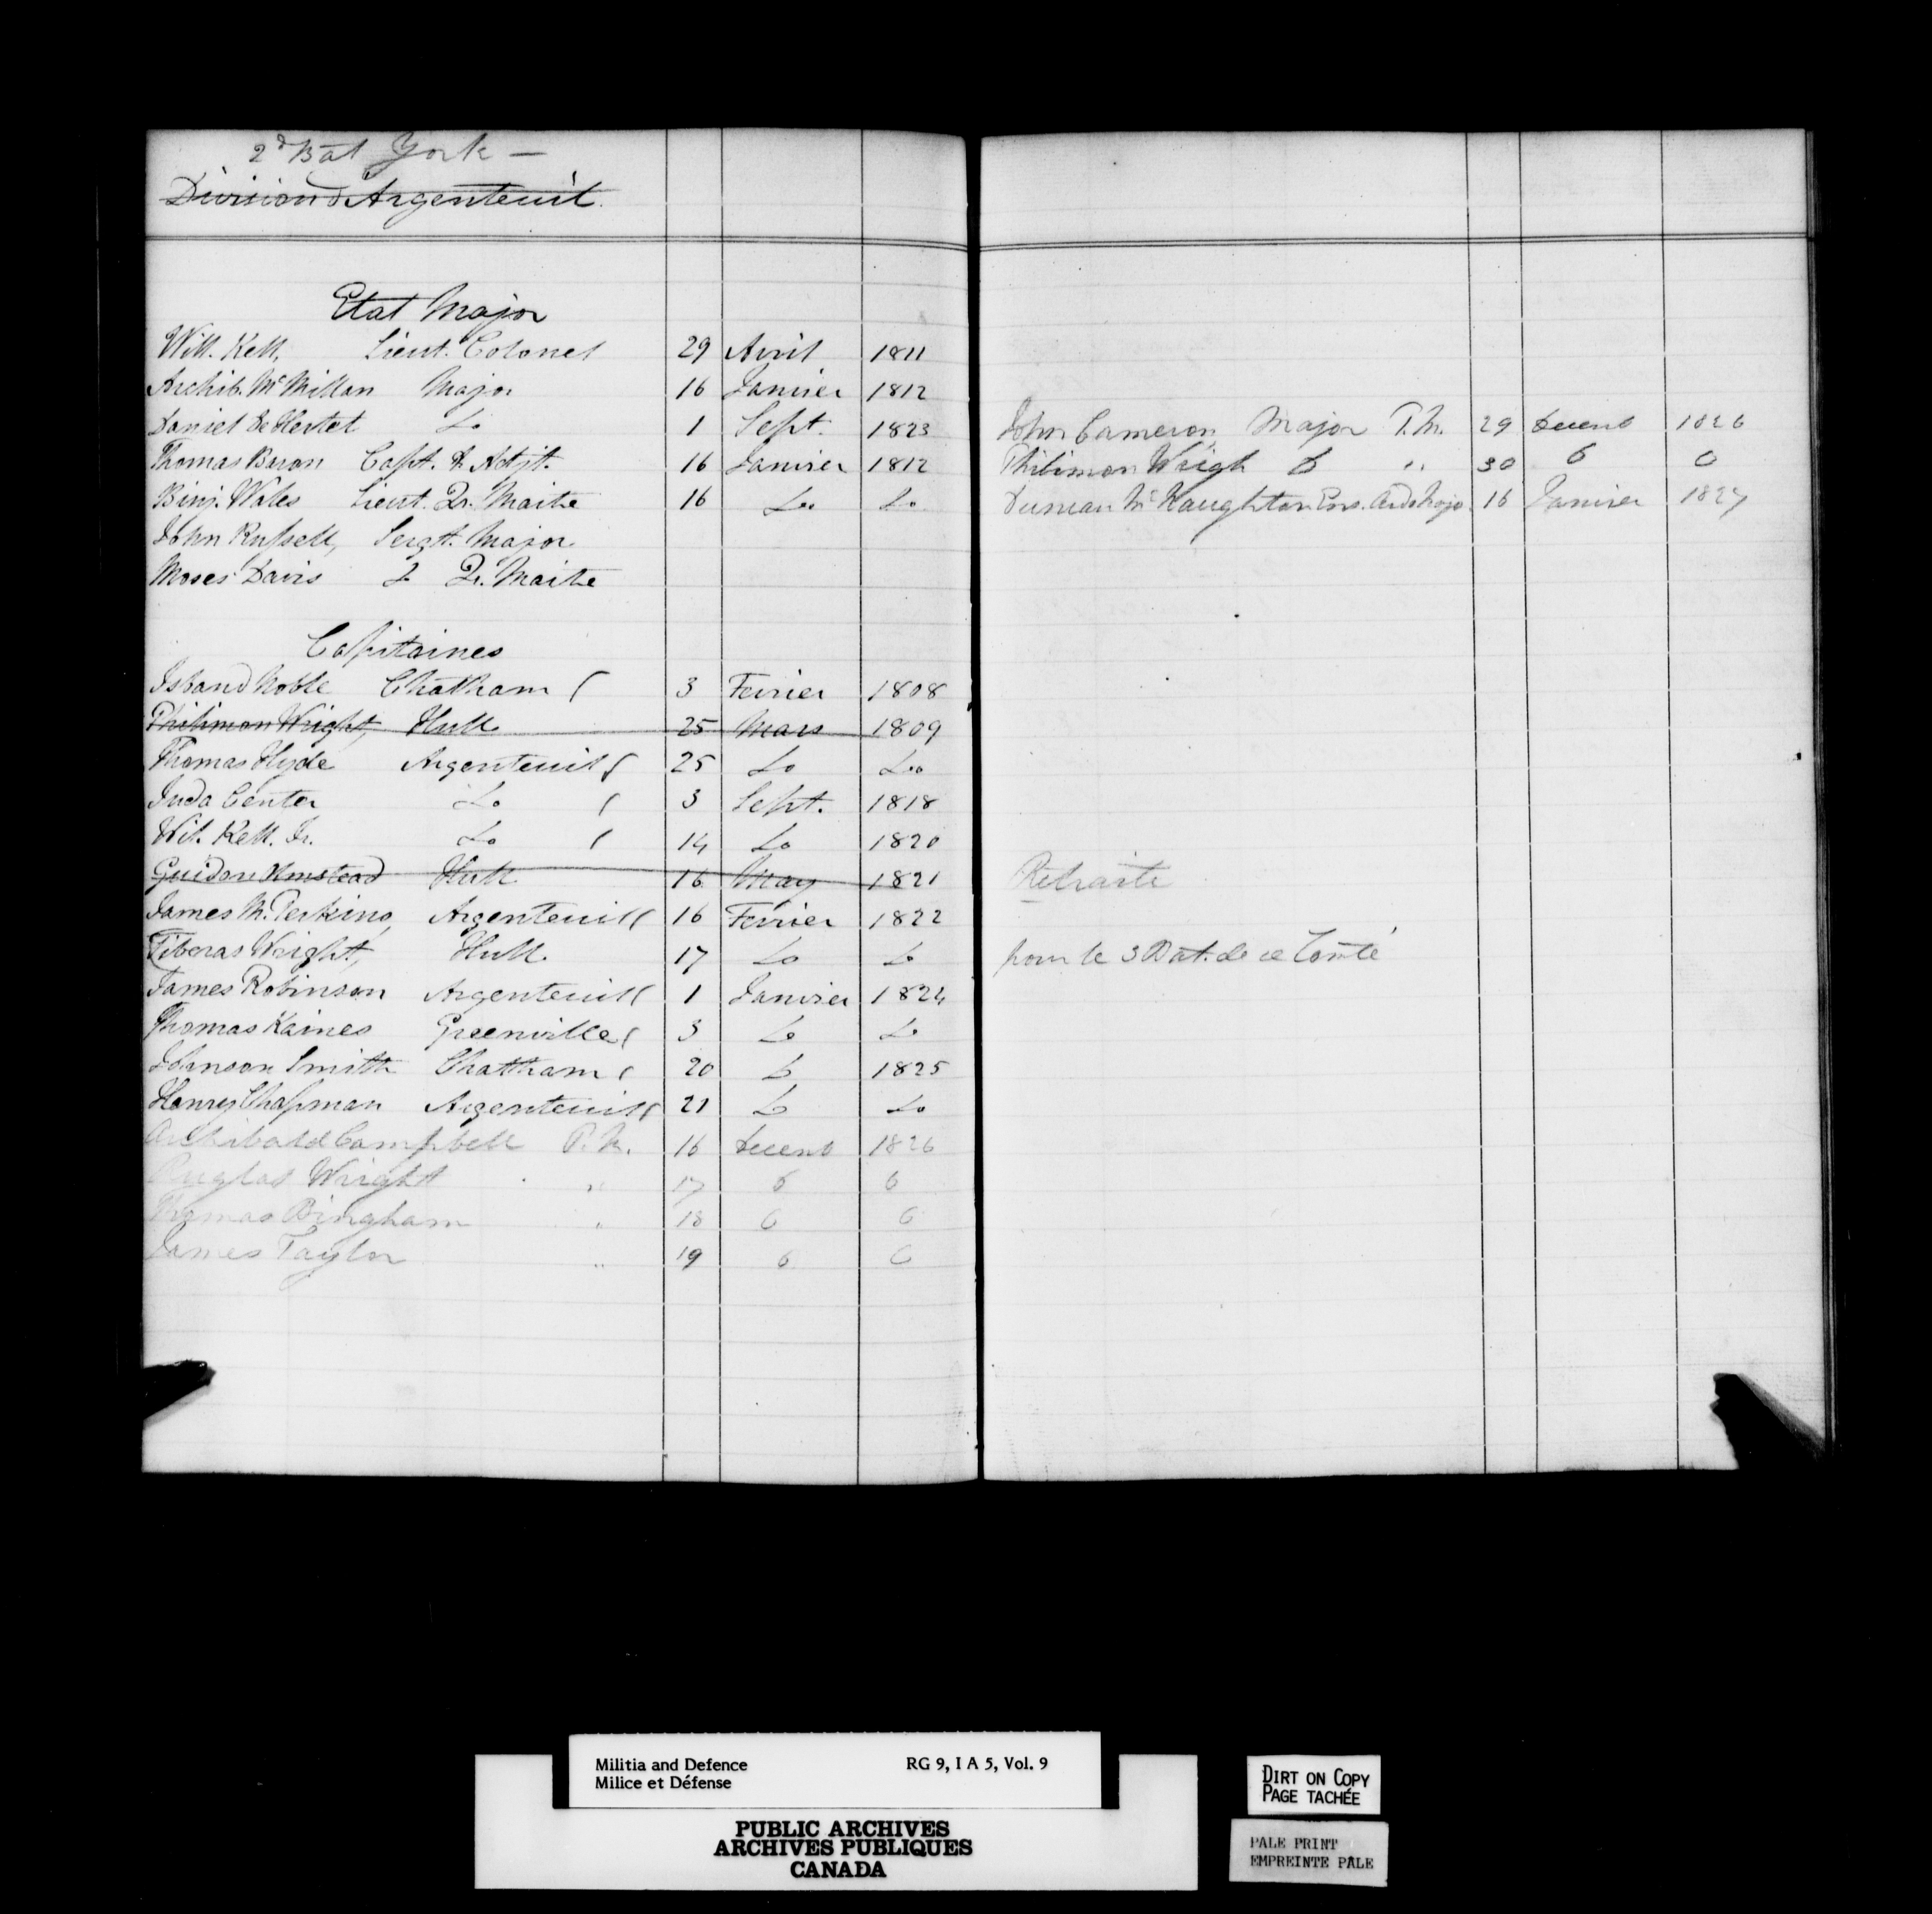 2d Bat York —
Division d'Argenteuil.
Etat Major
Will. Kell, Lieut. Colonel 29 Avril 1811
Archib. McMillan Major 16 Janvier 1812
Daniel De Hertel Do 1 Sept. 1823
Thomas Baron Capt. & Adjt. 16 Janvier 1812
Binj. Wales Lieut. Qr. Maitre 16 Do Do
John Russell, Sergt. Major
Moses Davis Do Qr. Maitre
Capitaines
Island Noble Chatham 3 Fevrier 1808
Philimon Wright, Hull 25 Mars 1809
Thomas Hyde Argenteuil 25 Do Do
Juda Center Do 3 Sept. 1818
Wil. Kell. Jr. Do 14 Do 1820
Guidon Olmstead Hull 16 May 1821
James M. Perkins, Argenteuil 16 Fevrier 1822
Tiberas Wright, Hull. 17 Do Do
James Robinson Argenteuil 1 Janvier 1824
Thomas Kaines Greenville 3 Do Do
Johnson Smith Chatham 20 Do 1825
Henry Chapman Argenteuil 21 Do Do
Archibald Campbell P.M. 16 Decemb 1826
Ruglas Wright " 17 Do Do
Thomas Bingham " 18 Do Do
James Taylor " 19 Do Do
John Cameron, Major P.M. 29 Decemb 1826
Philimon Wrigh Do " 30 Do Do
Duncan McNaughton Ens. Aide Major 16 Janvier 1827
Retraite
pour le 3 Bat. de ce Comté
Militia and Defence RG 9, I A 5, Vol. 9
Milice et Défense
PUBLIC ARCHIVES
ARCHIVES PUBLIQUES
CANADA
DIRT ON COPY
PAGE TACHÉE
PALE PRINT
EMPREINTE PÂLE